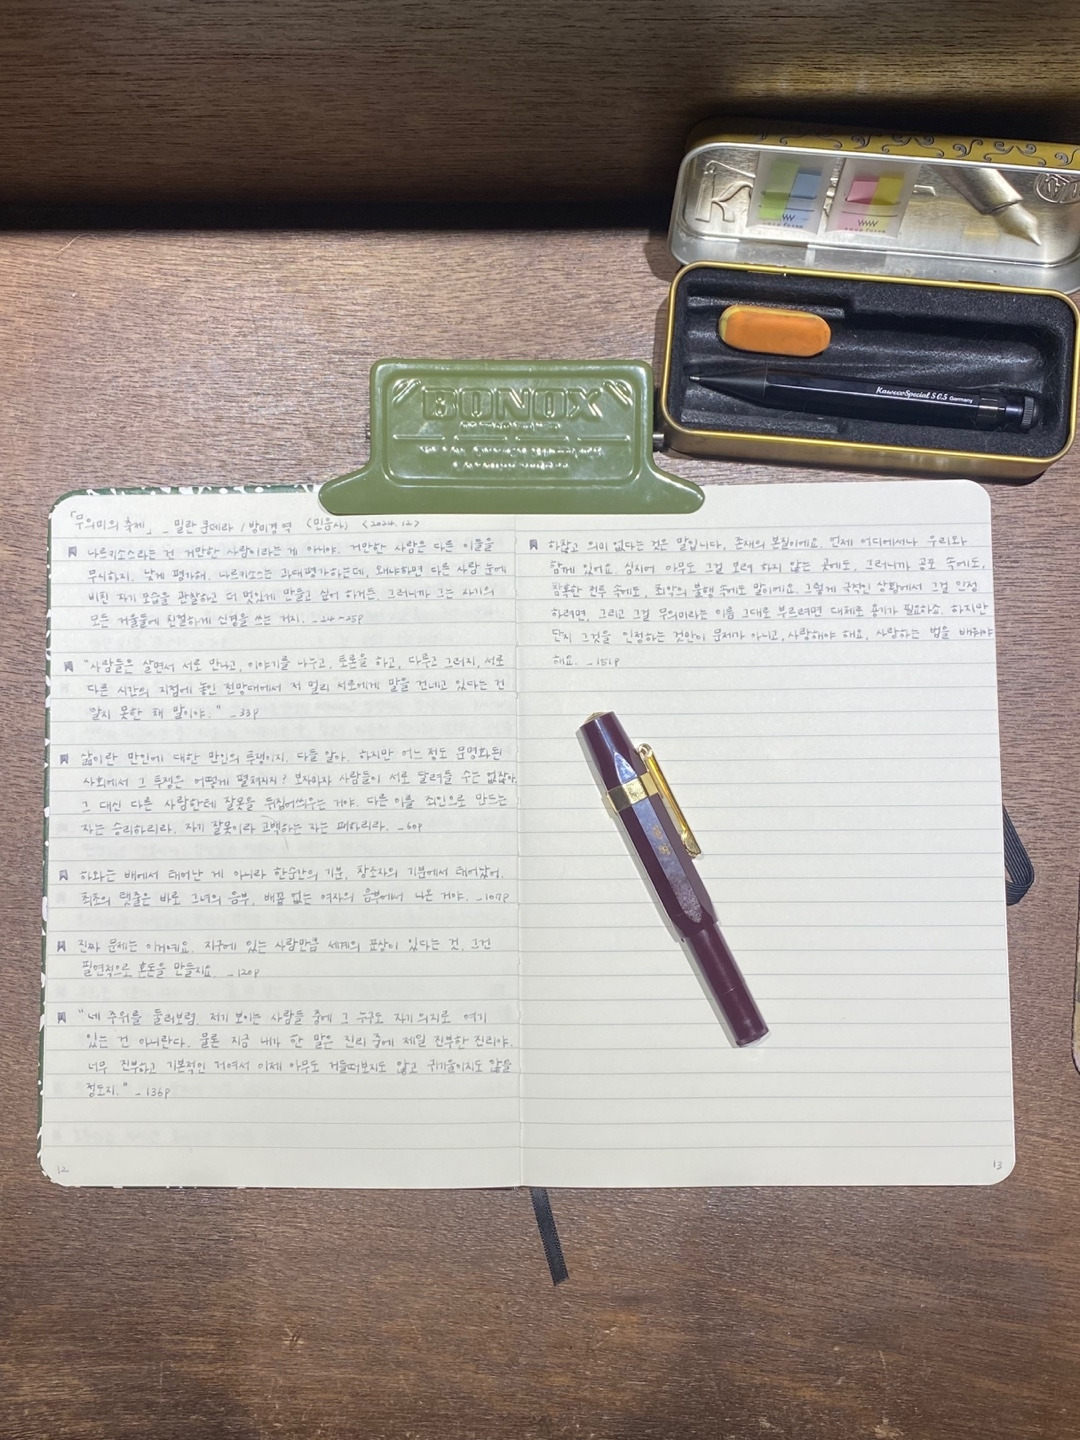 BONOX
KawecoSpecial S 0.5 Germany
「무의미의 축제」 _ 밀란 쿤데라 / 방미경 역 (민음사) <2024.12>
나르키소스라는 건 거만한 사람이라는 게 아니야. 거만한 사람은 다른 이들을
무시하지. 낮게 평가해. 나르키소스는 과대평가하는데, 왜냐하면 다른 사람 눈에
비친 자기 모습을 관찰하고 더 멋있게 만들고 싶어 하거든. 그러니까 그는 자기의
모든 거울들에 친절하게 신경을 쓰는 거지. _24-25p
"사람들은 살면서 서로 만나고, 이야기를 나누고, 토론을 하고, 다투고 그러지, 서로
다른 시간의 지점에 놓인 전망대에서 저 멀리 서로에게 말을 건네고 있다는 건
알지 못한 채 말이야." _33p
삶이란 만인에 대한 만인의 투쟁이지. 다들 알아. 하지만 어느 정도 문명화된
사회에서 그 투쟁은 어떻게 펼쳐지지? 보자마자 사람들이 서로 달려들 수는 없잖아.
그 대신 다른 사람한테 잘못을 뒤집어씌우는 거야. 다른 이를 죄인으로 만드는
자는 승리하리라. 자기 잘못이라 고백하는 자는 패하리라. _60p
하와는 배에서 태어난 게 아니라 한순간의 기분, 창조자의 기분에서 태어났어.
최초의 탯줄은 바로 그녀의 음부, 배꼽 없는 여자의 음부에서 나온 거야. _107p
진짜 문제는 이거예요. 지구에 있는 사람만큼 세계의 표상이 있다는 것, 그건
필연적으로 혼돈을 만들지요. _120p
"네 주위를 둘러보렴. 저기 보이는 사람들 중에 그 누구도 자기 의지로 여기
있는 건 아니란다. 물론 지금 내가 한 말은 진리 중에 제일 진부한 진리야.
너무 진부하고 기본적인 거여서 이제 아무도 거들떠보지도 않고 귀기울이지도 않을
정도지." _136p
12
하찮고 의미 없다는 것은 말입니다, 존재의 본질이에요. 언제 어디에서나 우리와
함께 있어요. 심지어 아무도 그걸 보려 하지 않는 곳에도, 그러니까 공포 속에도,
참혹한 전투 속에도, 최악의 불행 속에도 말이에요. 그렇게 극적인 상황에서 그걸 인정
하려면, 그리고 그걸 무의미라는 이름 그대로 부르려면 대체로 용기가 필요하죠. 하지만
단지 그것을 인정하는 것만이 문제가 아니고, 사랑해야 해요, 사랑하는 법을 배워야
해요. _151p
13